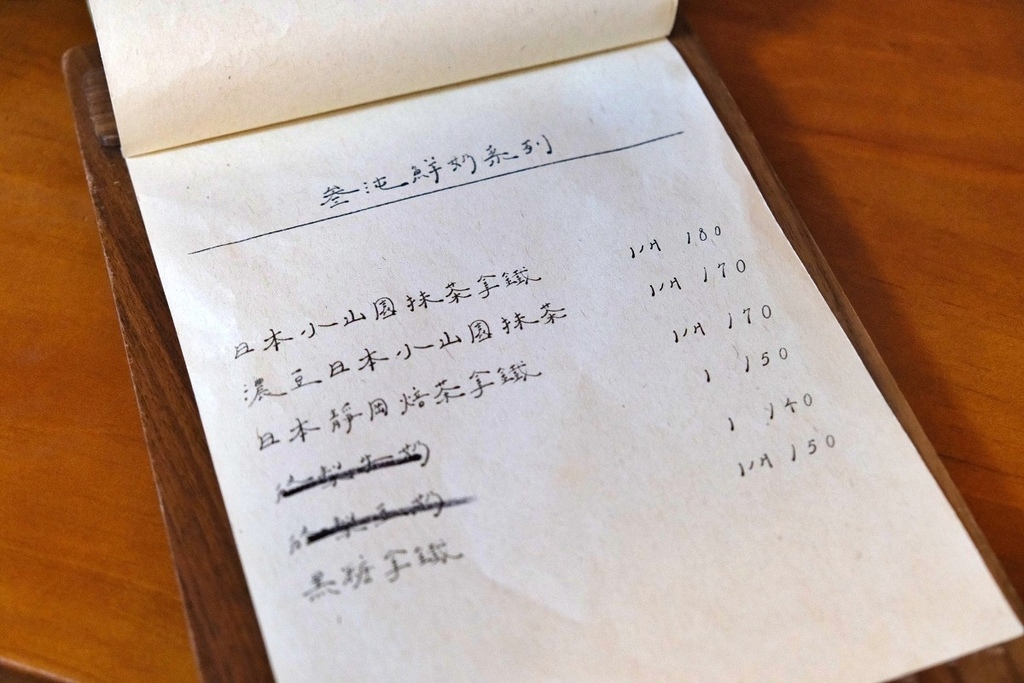 叁沌鮮奶系列
日本小山園抹茶拿鐵 I/H 180
濃豆日本小山園抹茶 I/H 170
日本靜岡焙茶拿鐵 I/H 170
I 150
I 140
黑糖拿鐵 I/H 150